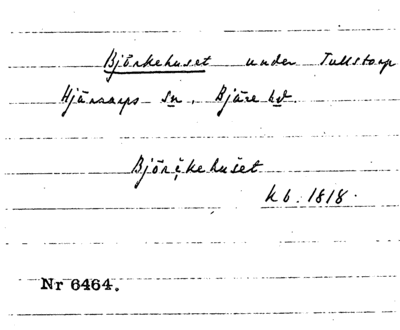 Björkehuset under Tullstorp
Hjärnarps sn, Bjäre hd.
Björkehuset
kb. 1818.
Nr 6464.